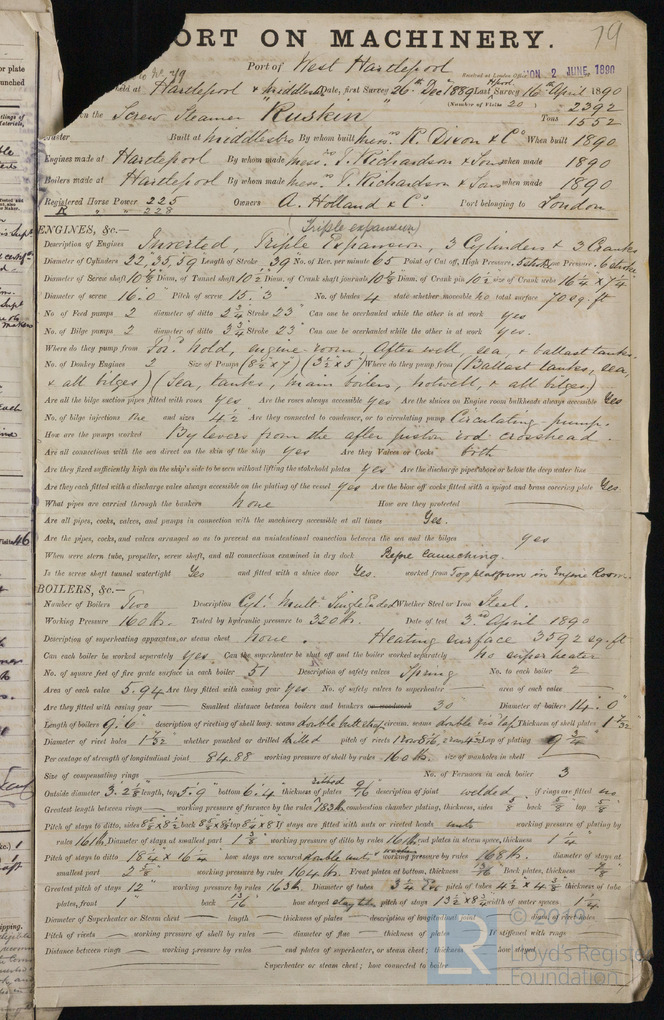 79
ORT ON MACHINERY.
Port of West Hartlepool
Received at London Office MON. 2 JUNE, 1890
held at Hartlepool & Middlesbro Date, first Survey 26th Decr 1889 Last Survey 16th April 1890
(Number of Visits 20) 2392
on the Screw Steamer "Ruskin" Tons 1552
Master Built at Middlesbro By whom built Messrs R. Dixon & Co When built 1890
Engines made at Hartlepool By whom made Messrs T. Richardson & Sons when made 1890
Boilers made at Hartlepool By whom made Messrs T. Richardson & Sons when made 1890
Registered Horse Power 225 Owners A. Holland & Co. Port belonging to London
" " 228
ENGINES, &c.— (Triple expansion)
Description of Engines Inverted, Triple Expansion, 3 Cylinders & 3 Cranks
Diameter of Cylinders 22, 35, 59 Length of Stroke 39 No. of Rev. per minute 65 Point of Cut off, High Pressure .5 stroke Low Pressure .6 stroke
Diameter of Screw shaft 10 7/8 Diam. of Tunnel shaft 10 1/2 Diam. of Crank shaft journals 10 7/8 Diam. of Crank pin 10 1/2 size of Crank webs 16 1/4 x 7 1/4
Diameter of screw 16.0 Pitch of screw 15.3 No. of blades 4 state whether moveable No total surface 70 sq. ft
No. of Feed pumps 2 diameter of ditto 2 3/4 Stroke 23" Can one be overhauled while the other is at work yes
No. of Bilge pumps 2 diameter of ditto 3 3/4 Stroke 23" Can one be overhauled while the other is at work yes.
Where do they pump from For'd hold, engine room, After well, sea, & ballast tanks.
No. of Donkey Engines 2 Size of Pumps (8 1/2 x 7) (3 1/2 x 5) Where do they pump from (Ballast tanks, sea,
& all bilges) (Sea, tanks, main boilers, hotwell, & all bilges)
Are all the bilge suction pipes fitted with roses yes Are the roses always accessible yes Are the sluices on Engine room bulkheads always accessible Yes
No. of bilge injections one and sizes 4 1/2 Are they connected to condenser, or to circulating pump Circulating pump.
How are the pumps worked By levers from the after piston rod crosshead.
Are all connections with the sea direct on the skin of the ship yes Are they Valves or Cocks both
Are they fixed sufficiently high on the ship's side to be seen without lifting the stokehold plates yes Are the discharge pipes above or below the deep water line
Are they each fitted with a discharge valve always accessible on the plating of the vessel yes Are the blow off cocks fitted with a spigot and brass covering plate Yes.
What pipes are carried through the bunkers None How are they protected
Are all pipes, cocks, valves, and pumps in connection with the machinery accessible at all times Yes.
Are the pipes, cocks, and valves arranged so as to prevent an unintentional connection between the sea and the bilges yes
When were stern tube, propeller, screw shaft, and all connections examined in dry dock Before launching.
Is the screw shaft tunnel watertight Yes and fitted with a sluice door Yes. worked from Top platform in Engine Room.
BOILERS, &c.—
Number of Boilers Two Description Cyl. Mult. Single Ended Whether Steel or Iron Steel.
Working Pressure 160 lbs. Tested by hydraulic pressure to 320 lbs. Date of test 3rd April 1890
Description of superheating apparatus, or steam chest None. Heating surface 3592 sq. ft
Can each boiler be worked separately Yes. Can the superheater be shut off and the boiler worked separately no superheater
No. of square feet of fire grate surface in each boiler 51 Description of safety valves Spring No. to each boiler 2
Area of each valve 5.94 Are they fitted with easing gear Yes No. of safety valves to superheater area of each valve
Are they fitted with easing gear Smallest distance between boilers and bunkers or woodwork 30" Diameter of boilers 14.0"
Length of boilers 9.6" description of riveting of shell long. seams double butt strap circum. seams double zig lap Thickness of shell plates 1 7/32
Diameter of rivet holes 1 7/32 whether punched or drilled drilled pitch of rivets Lap of plating
Per centage of strength of longitudinal joint 84.88 working pressure of shell by rules 160 lbs. size of manholes in shell
Size of compensating rings No. of Furnaces in each boiler 3
Outside diameter 3.2 7/8 length, top 5.9" bottom 6.4" thickness of plates ribbed 9/16 description of joint welded. if rings are fitted no
Greatest length between rings working pressure of furnace by the rules 183 lbs combustion chamber plating, thickness, sides 5/8 back 5/8 top 5/8
Pitch of stays to ditto, sides back top If stays are fitted with nuts or riveted heads nuts working pressure of plating by
rules 161 lbs. Diameter of stays at smallest part 1 3/8 working pressure of ditto by rules 161 lbs. end plates in steam space, thickness 1 1/4"
Pitch of stays to ditto 18 1/4 x 16 1/4 how stays are secured double nuts & washers working pressure by rules 168 lbs. diameter of stays at
smallest part 2 5/8 working pressure by rules 164 lbs. Front plates at bottom, thickness Back plates, thickness
Greatest pitch of stays 12" working pressure by rules 163 lbs. Diameter of tubes 3 1/4 pitch of tubes 4 1/2 x 4 3/8 thickness of tube
plates, front 1" back 13/16 how stayed stay tubes pitch of stays width of water spaces 1 1/4
Diameter of Superheater or Steam chest length thickness of plates description of longitudinal joint diam. of rivet holes
Pitch of rivets working pressure of shell by rules diameter of flue thickness of plates If stiffened with rings
Distance between rings working pressure by rules end plates of superheater, or steam chest; thickness how stayed
Superheater or steam chest; how connected to boiler
LR
Lloyd's Register
Foundation